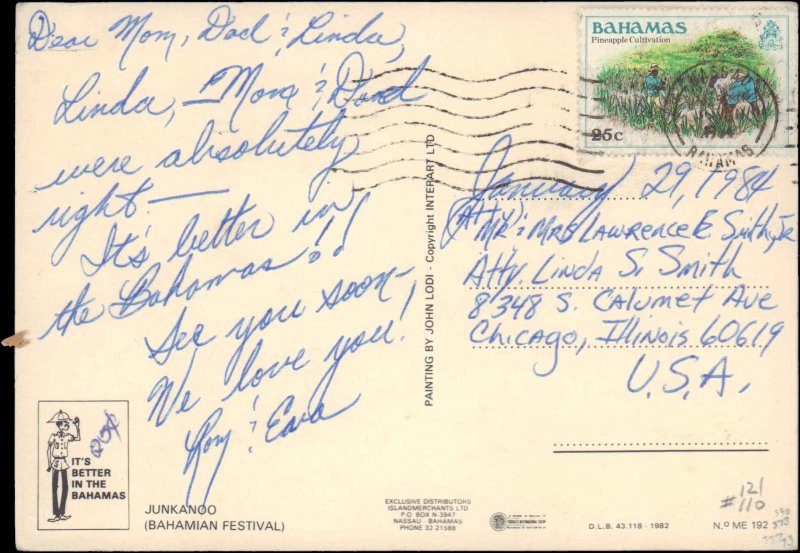 Dear Mom, Dad & Linda,
Linda, — Mom & Dad
were absolutely
right. —
It's better in
the Bahamas!!
See you soon —
We love you!
&
BAHAMAS
Pineapple Cultivation
25c
BAHAMAS
January 29, 1984
(Atty)
Mr & Mrs Lawrence E. Smith, Jr
Atty. Linda S. Smith
8348 S. Calumet Ave
Chicago, Illinois 60619
U.S.A.
PAINTING BY JOHN LODI - Copyright INTERART LTD
IT'S
BETTER
IN THE
BAHAMAS
JUNKANOO
(BAHAMIAN FESTIVAL)
EXCLUSIVE DISTRIBUTORS
ISLANDMERCHANTS LTD
P.O. BOX N-3947
NASSAU - BAHAMAS
PHONE 32-21588
D.L.B. 43.118 - 1982
N.º ME 192
121
#110